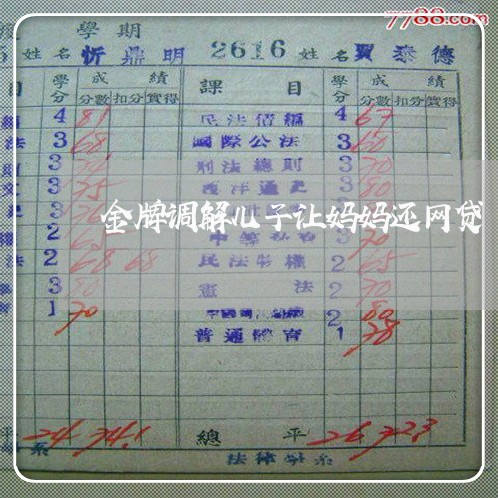 7788.com
學期
姓名 忻鼎明 2616 姓名 賈泰德
目 學分 成績 課目 學分 成績
分數 扣分 實得 分數 扣分 實得
4 81 民法債編 4 67
法 3 68 國際公法 3 60
3 刑法總則 3 70
3 75 西洋通史 3 80
金牌调解儿子让妈妈还网贷
2 3 70
法 2 68 68 民法物權 2 65
3 80 憲法 2 70
1 70 2 80
普通體育 1 78
平 24 74.1 總平 26 72.3
系 法律學系